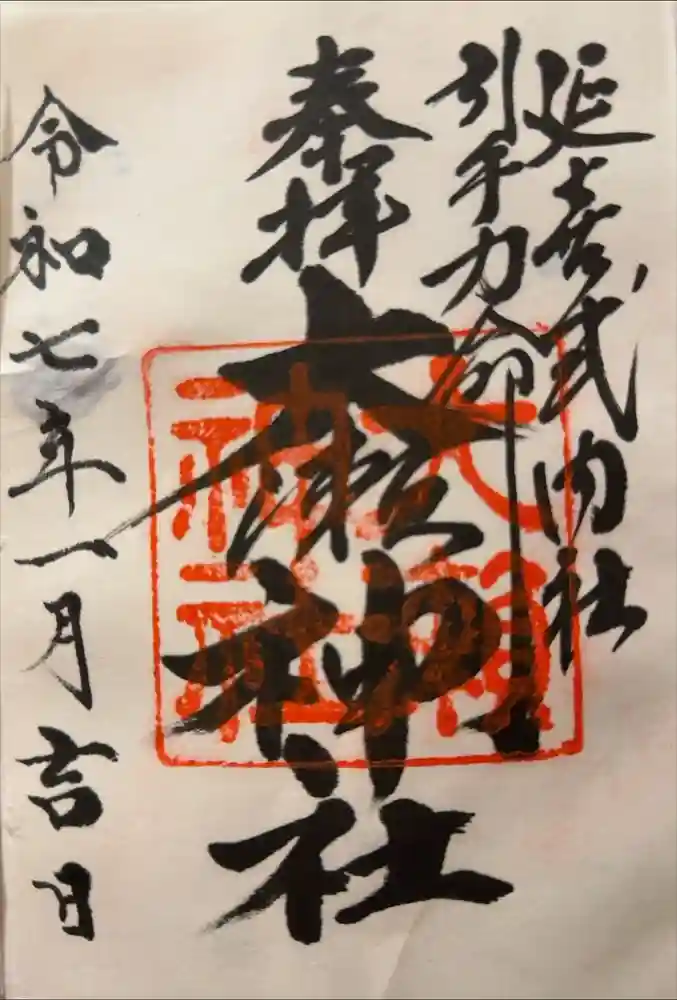 延喜式内社
引手力命
奉拝
大瀬神社
大瀬神社
令和七年一月吉日